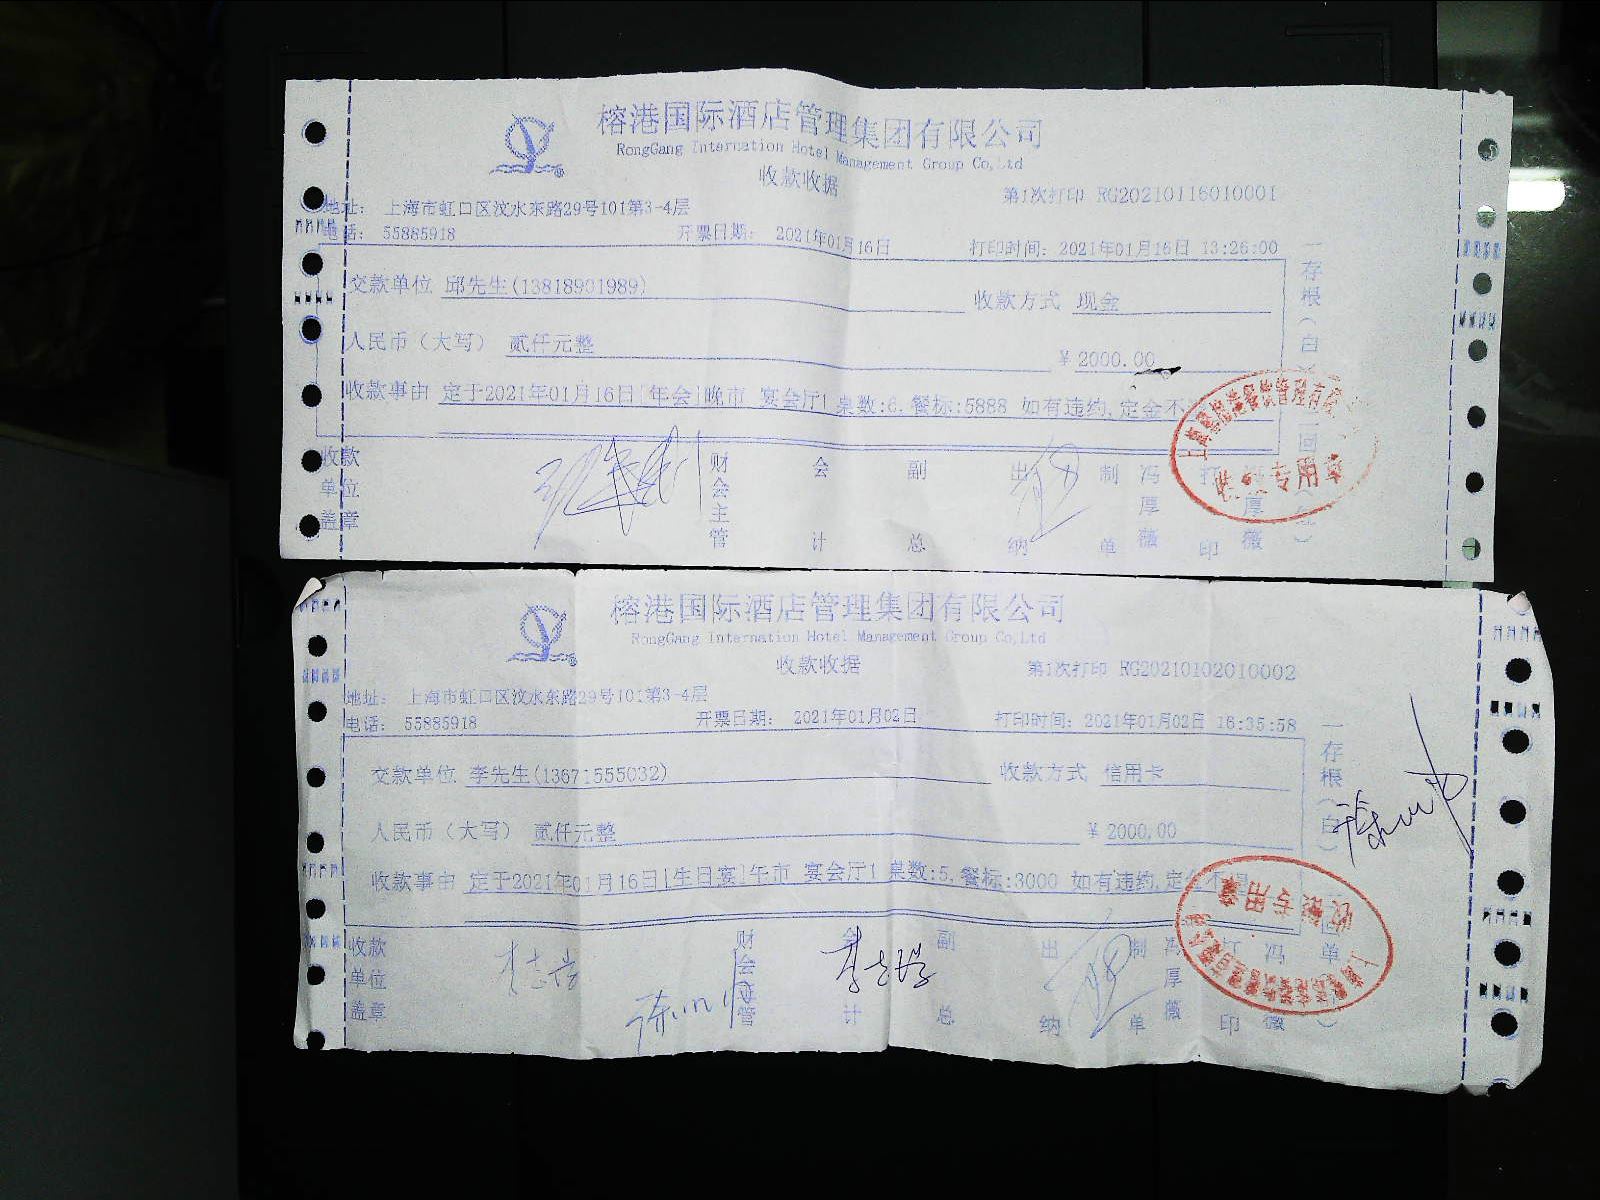 榕港国际酒店管理集团有限公司
RongGang Internation Hotel Management Group Co,Ltd
收款收据
第1次打印 RG20210116010001
地址: 上海市虹口区汶水东路29号101第3-4层
电话: 55885918 开票日期: 2021年01月16日 打印时间: 2021年01月16日 13:26:00
交款单位 邱先生(13818901989) 收款方式 现金
人民币（大写） 贰仟元整 ¥ 2000.00
收款事由 定于2021年01月16日[年会]晚市 宴会厅1 桌数:6,餐标:5888 如有违约,定金不
收款单位盖章 财会主管 会计 副总 出纳 制单 冯厚薇 打印 厚薇
一存根(白)
专用章
榕港国际酒店管理集团有限公司
RongGang Internation Hotel Management Group Co,Ltd
收款收据
第1次打印 RG20210102010002
地址: 上海市虹口区汶水东路29号101第3-4层
电话: 55885918 开票日期: 2021年01月02日 打印时间: 2021年01月02日 16:35:58
交款单位 李先生(13671555032) 收款方式 信用卡
人民币（大写） 贰仟元整 ¥ 2000.00
收款事由 定于2021年01月16日[生日宴]午市 宴会厅1 桌数:5,餐标:3000 如有违约,定金不退
收款单位盖章 财会主管 会计 副总 出纳 制单 冯厚薇 打印 冯薇
一存根(白)
回单
收款专用章